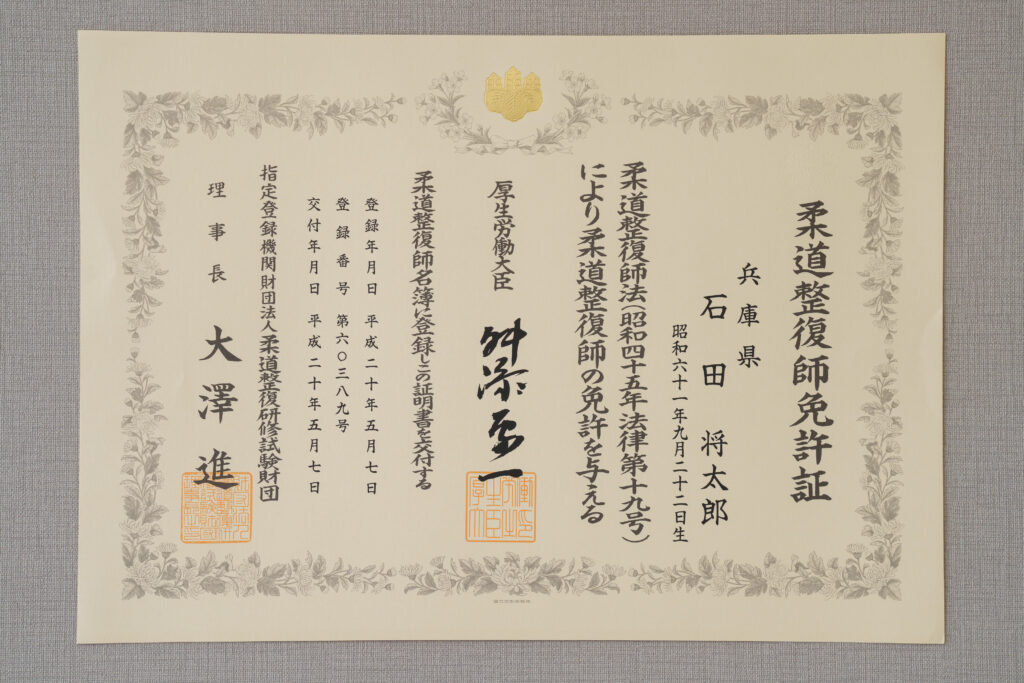 柔道整復師免許証
兵庫県
石田 将太郎
昭和六十一年九月二十二日生
柔道整復師法(昭和四十五年法律第十九号)
により柔道整復師の免許を与える
厚生労働大臣 舛添要一
柔道整復師名簿に登録しこの証明書を交付する
登録年月日 平成二十年五月七日
登録番号 第六〇三八九号
交付年月日 平成二十年五月七日
指定登録機関財団法人柔道整復研修試験財団
理事長 大澤進